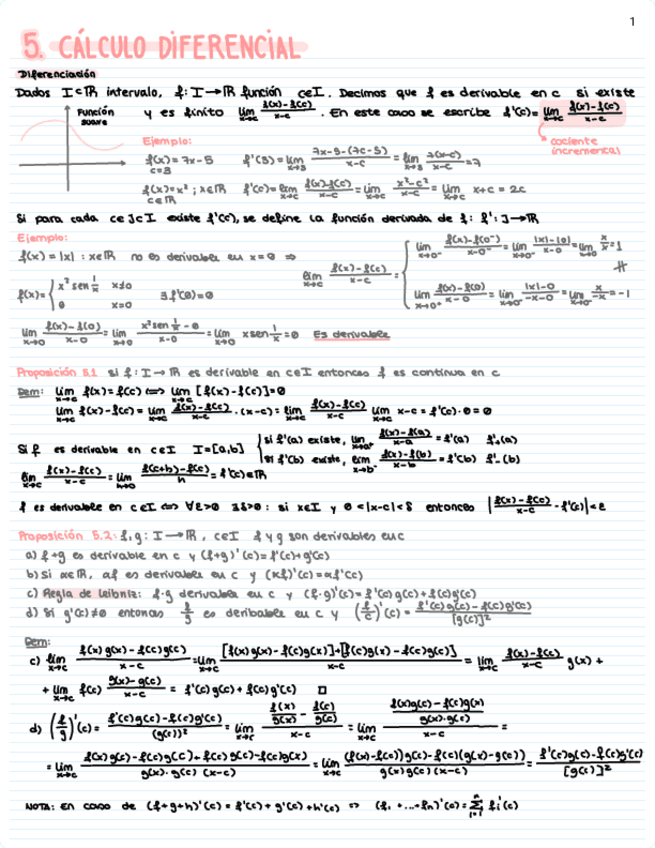 1
5. CÁLCULO DIFERENCIAL
Diferenciación
Dados I⊂ℝ intervalo, f: I→ℝ función c∈I. Decimos que f es derivable en c si existe
Función suave
y es finito lim_{x→c} (f(x)-f(c))/(x-c). En este caso se escribe f'(c)= lim_{x→c} (f(x)-f(c))/(x-c)
cociente incremental
Ejemplo:
f(x)=7x-5 c=3 f'(3)= lim_{x→3} (7x-5-(7c-5))/(x-c) = lim_{x→3} 7(x-c)/(x-c) = 7
f(x)=x² ; x∈ℝ c∈ℝ f'(c)= lim_{x→c} (f(x)-f(c))/(x-c) = lim_{x→c} (x²-c²)/(x-c) = lim_{x→c} x+c = 2c
Si para cada c∈J⊂I existe f'(c), se define la función derivada de f: f': J→ℝ
Ejemplo:
f(x)=|x| : x∈ℝ no es derivable en x=0 ⇒ lim_{x→c} (f(x)-f(c))/(x-c) = {
lim_{x→0⁻} (f(x)-f(0⁻))/(x-0⁻) = lim_{x→0⁻} (|x|-|0|)/(x-0) = lim_{x→0} x/x = 1
#
lim_{x→0⁺} (f(x)-f(0))/(x-0) = lim_{x→0⁺} (|x|-0)/(-x-0) = lim_{x→0} x/-x = -1
f(x)= { x² sen 1/x x≠0
0 x=0 ∃f'(0)=0
lim_{x→0} (f(x)-f(0))/(x-0) = lim_{x→0} (x² sen 1/x - 0)/(x-0) = lim_{x→0} x sen 1/x = 0 Es derivable
Proposición 5.1 si f: I→ℝ es derivable en c∈I entonces f es continua en c
Dem: lim_{x→c} f(x)=f(c) ⟺ lim_{x→c} [f(x)-f(c)]=0
lim_{x→c} f(x)-f(c) = lim_{x→c} (f(x)-f(c))/(x-c) · (x-c) = lim_{x→c} (f(x)-f(c))/(x-c) lim_{x→c} x-c = f'(c)·0=0
Si f es derivable en c∈I I=[a,b] { si f'(a) existe, lim_{x→a⁺} (f(x)-f(a))/(x-a) = f'(a) f'₊(a)
si f'(b) existe, lim_{x→b⁻} (f(x)-f(b))/(x-b) = f'(b) f'₋(b)
lim_{x→c} (f(x)-f(c))/(x-c) = lim_{h→0} (f(c+h)-f(c))/h = f'(c)∈ℝ
f es derivable en c∈I ⟺ ∀ε>0 ∃δ>0 : si x∈I y 0<|x-c|<δ entonces |(f(x)-f(c))/(x-c) - f'(c)|<ε
Proposición 5.2: f,g: I→ℝ, c∈I f y g son derivables en c
a) f+g es derivable en c y (f+g)'(c)=f'(c)+g'(c)
b) Si α∈ℝ, αf es derivable en c y (αf)'(c)=αf'(c)
c) Regla de Leibniz: f·g derivable en c y (f·g)'(c)=f'(c)g(c)+f(c)g'(c)
d) Si g'(c)≠0 entonces f/g es deribable en c y (f/g)'(c) = (f'(c)g(c)-f(c)g'(c))/[g(c)]²
Dem:
c) lim_{x→c} (f(x)g(x)-f(c)g(c))/(x-c) = lim_{x→c} ([f(x)g(x)-f(c)g(x)]+[f(c)g(x)-f(c)g(c)])/(x-c) = lim_{x→c} (f(x)-f(c))/(x-c) g(x) +
+ lim_{x→c} f(c) (g(x)-g(c))/(x-c) = f'(c)g(c)+f(c)g'(c) □
d) (f/g)'(c) = (f'(c)g(c)-f(c)g'(c))/(g(c))² = lim_{x→c} (f(x)/g(x) - f(c)/g(c))/(x-c) = lim_{x→c} ((f(x)g(c)-f(c)g(x))/(g(x)·g(c)))/(x-c) =
= lim_{x→c} (f(x)g(c)-f(c)g(c)+f(c)g(c)-f(c)g(x))/(g(x)·g(c)(x-c)) = lim_{x→c} ((f(x)-f(c))g(c)-f(c)(g(x)-g(c)))/(g(x)g(c)(x-c)) = (f'(c)g(c)-f(c)g'(c))/[g(c)]²
NOTA: En caso de (f+g+h)'(c)=f'(c)+g'(c)+h'(c) ⇒ (f₁+...+fₙ)'(c)=∑_{i=1}^{n} fᵢ'(c)